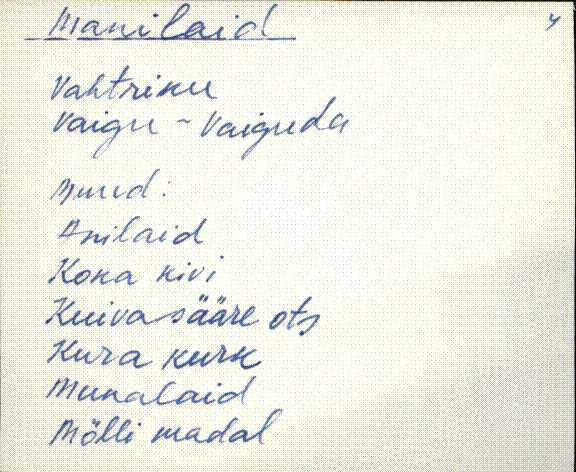 Manilaid
4
Vahtriku
Vaigu ~ Vaiguda
Muud:
Anilaid
Koka kivi
Kuivasääre ots
Kura kurk
Munalaid
Mölli madal